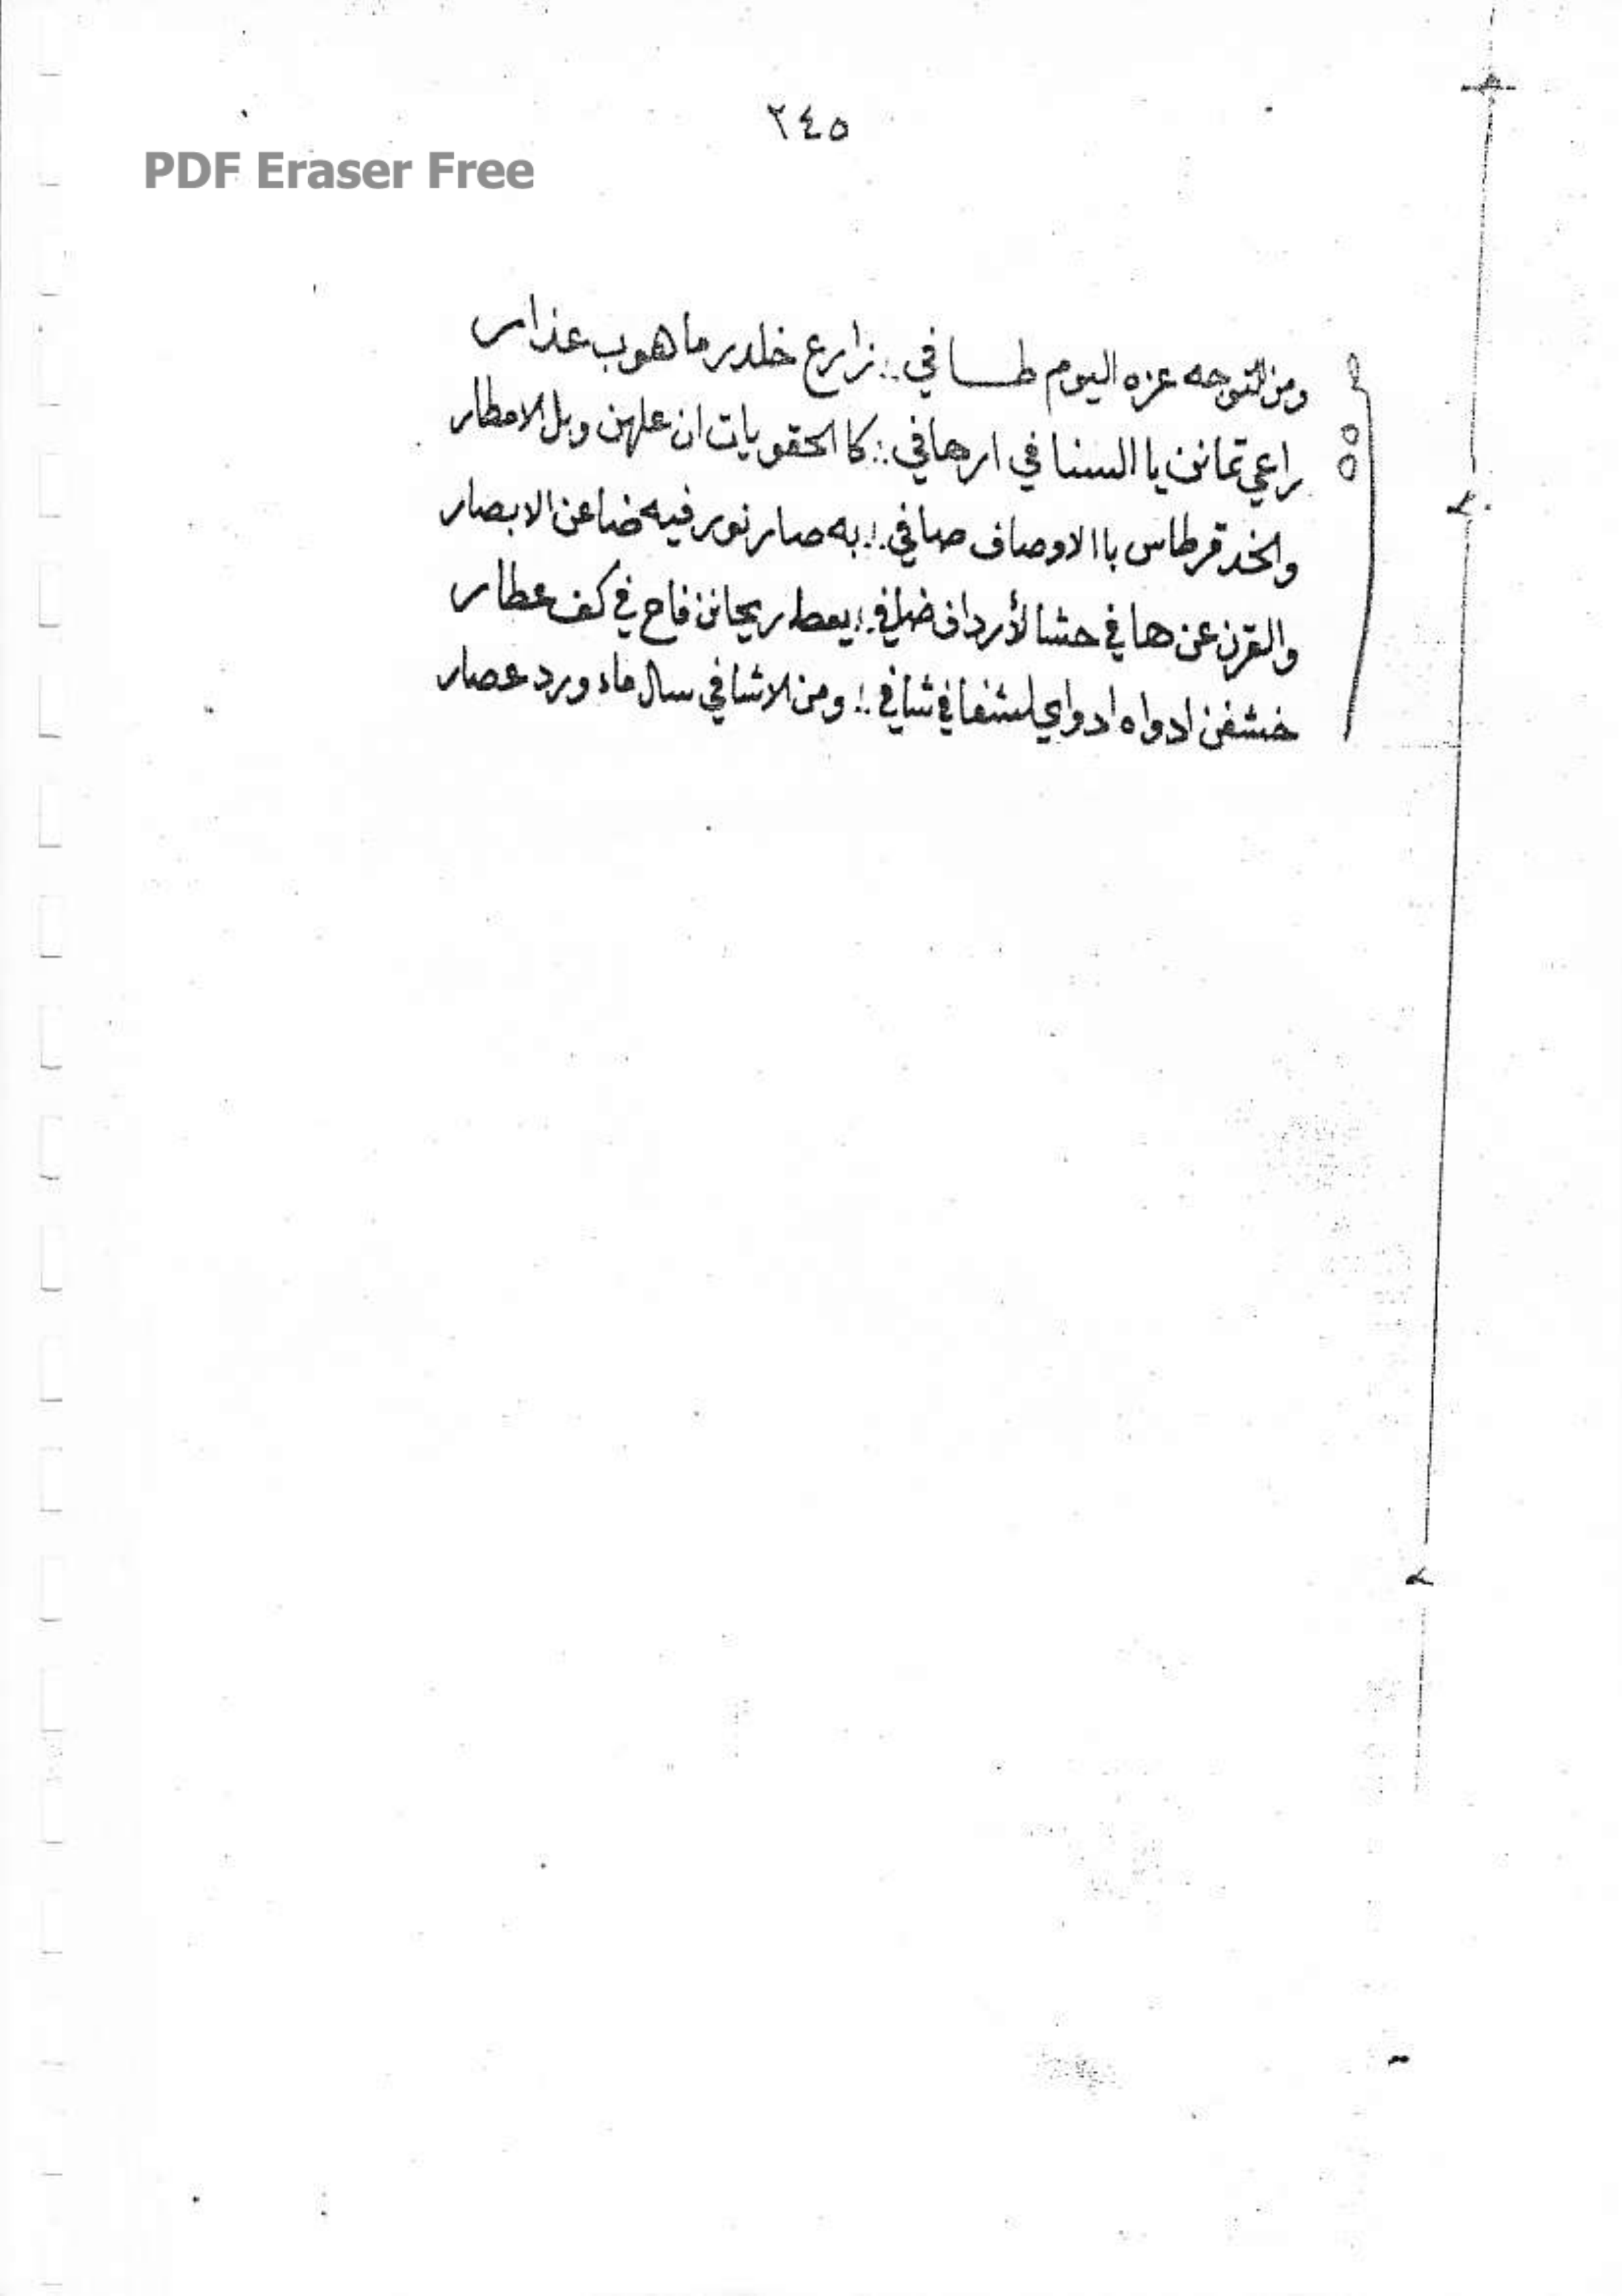 ٢٤٥
PDF Eraser Free
ومن لتوجه عزه اليوم طـــافي .: زارع خلدر ما هوب عذار
راعي ثمانن يا السنا في ارهافي .: كا الحقويات ان علهن وبل الامطار
والخد قرطاس باا الاوصاف صافي .: به صار نور فيه ضاعن الابصار
والقرن عن ها في حشا لأرداف ضافي .: يعطر ريحانن فاح في كف عطار
خشفن ادواه ادواي لشفا في شافي .: ومن لاشافي سال ماء ورد عصار